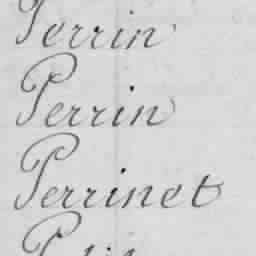 Perrin
Perrin
Perrinet